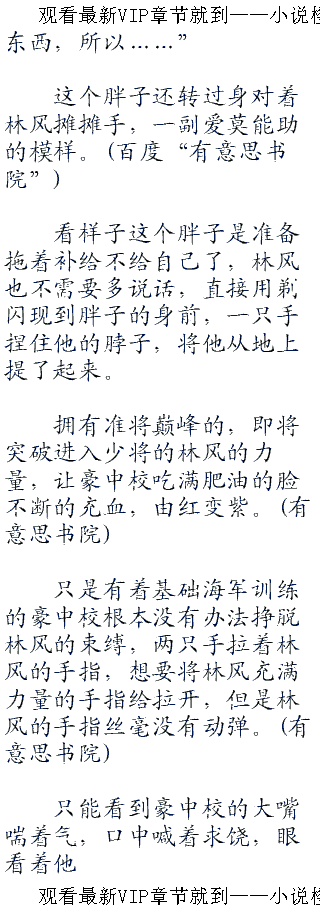 观看最新VIP章节就到——小说档
东西，所以……”
这个胖子还转过身对着
林风摊摊手，一副爱莫能助
的模样。(百度“有意思书
院”)
看样子这个胖子是准备
拖着补给不给自己了，林风
也不需要多说话，直接用剃
闪现到胖子的身前，一只手
捏住他的脖子，将他从地上
提了起来。
拥有准将巅峰的，即将
突破进入少将的林风的力
量，让豪中校吃满肥油的脸
不断的充血，由红变紫。(有
意思书院)
只是有着基础海军训练
的豪中校根本没有办法挣脱
林风的束缚，两只手拉着林
风的手指，想要将林风充满
力量的手指给拉开，但是林
风的手指丝毫没有动弹。(有
意思书院)
只能看到豪中校的大嘴
喘着气，口中喊着求饶，眼
看着他
观看最新VIP章节就到——小说